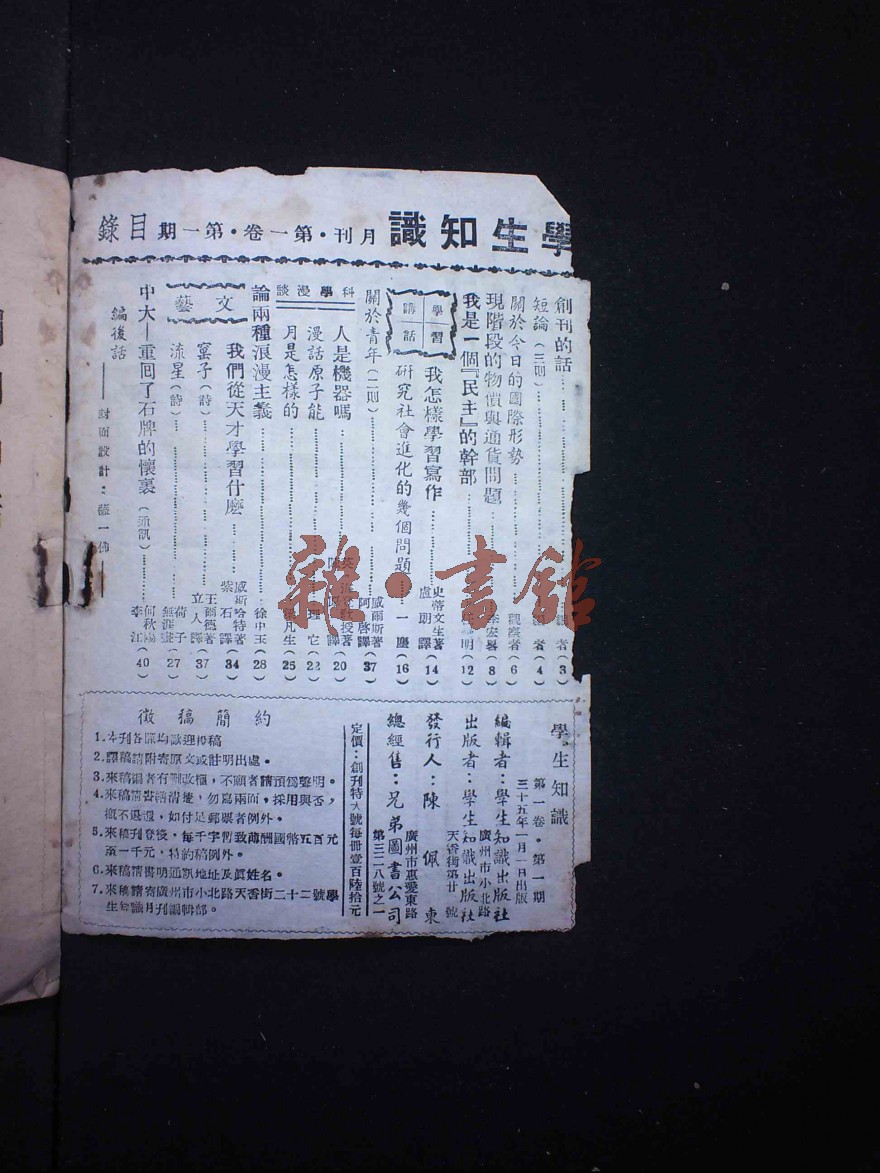 學生知識 月刊・第一卷・第一期 目錄
創刊的話 者(3)
短論(三則) 者(4)
關於今日的國際形勢 觀察者(6)
現階段的物價與通貨問題 李宏畧(8)
我是一個『民主』的幹部 明(12)
學習講話
我怎樣學習寫作 史蒂文生著 盧期譯(14)
研究社會進化的幾個問題 一塵(16)
關於青年(二則) 威爾斯著 阿啓譯(37)
科學漫談
人是機器嗎 教授著 譯(20)
漫話原子能 理它(22)
月是怎樣的 凡生(25)
論兩種浪漫主義 徐中玉(28)
文藝
我們從天才學習什麽 威斯哈特著 紫石譯(34)
窰子(詩) 王爾德著 立人譯(37)
流星(詩) 荷子(27)
中大—重回了石牌的懷裏(通訊) 何秋 李江(40)
編後話
封面設計：一佛
學生知識
第一卷・第一期
三十五年一月一日出版
編輯者：學生知識出版社
廣州市小北路
出版者：學生知識出版社
天香街第廿 號
發行人：陳佩東
廣州市惠愛東路
總經售：兄弟圖書公司
第三二八號之一
定價：創刊特大號每冊壹百陸拾元
徵稿簡約
1.本刊各欄均歡迎投稿
2.譯稿請附寄原文或註明出處。
3.來稿編者有刪改權，不願者請預爲聲明。
4.來稿請書繕清楚，勿寫兩面，採用與否，
概不退還，如付足郵票者例外。
5.來稿刊登後，每千字暫致薄酬國幣五百元
至一千元，特約稿例外。
6.來稿請書明通訊地址及眞姓名。
7.來稿請寄廣州市小北路天香街二十二號學
生知識月刊編輯部。
雜・書館